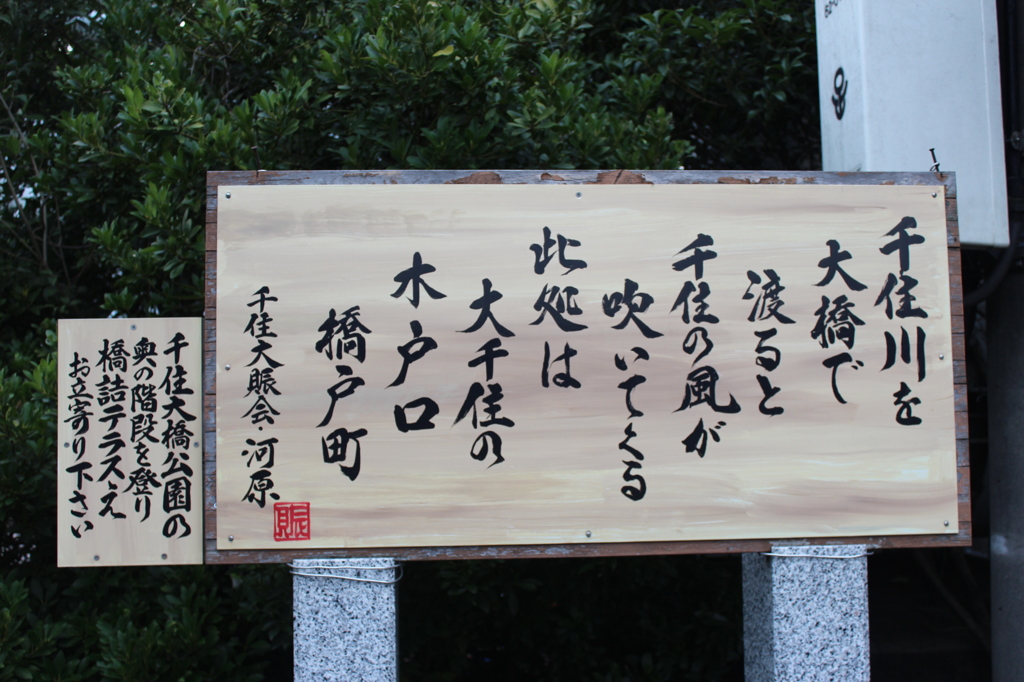 千住川を
大橋で
渡ると
千住の風が
吹いてくる
此処は
大千住の
木戸口
橋戸町
千住大賑会・河原
賑
千住大橋公園の
奥の階段を登り
橋詰テラスえ
お立寄り下さい